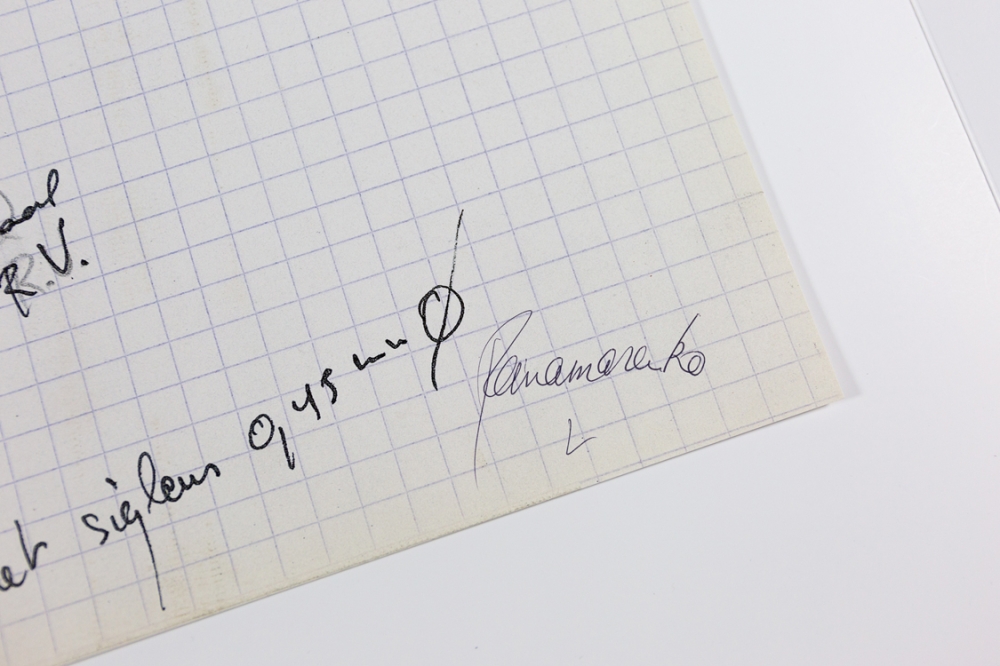 R.V.
siglens 0,45 mm Ø
Panamarenko
L